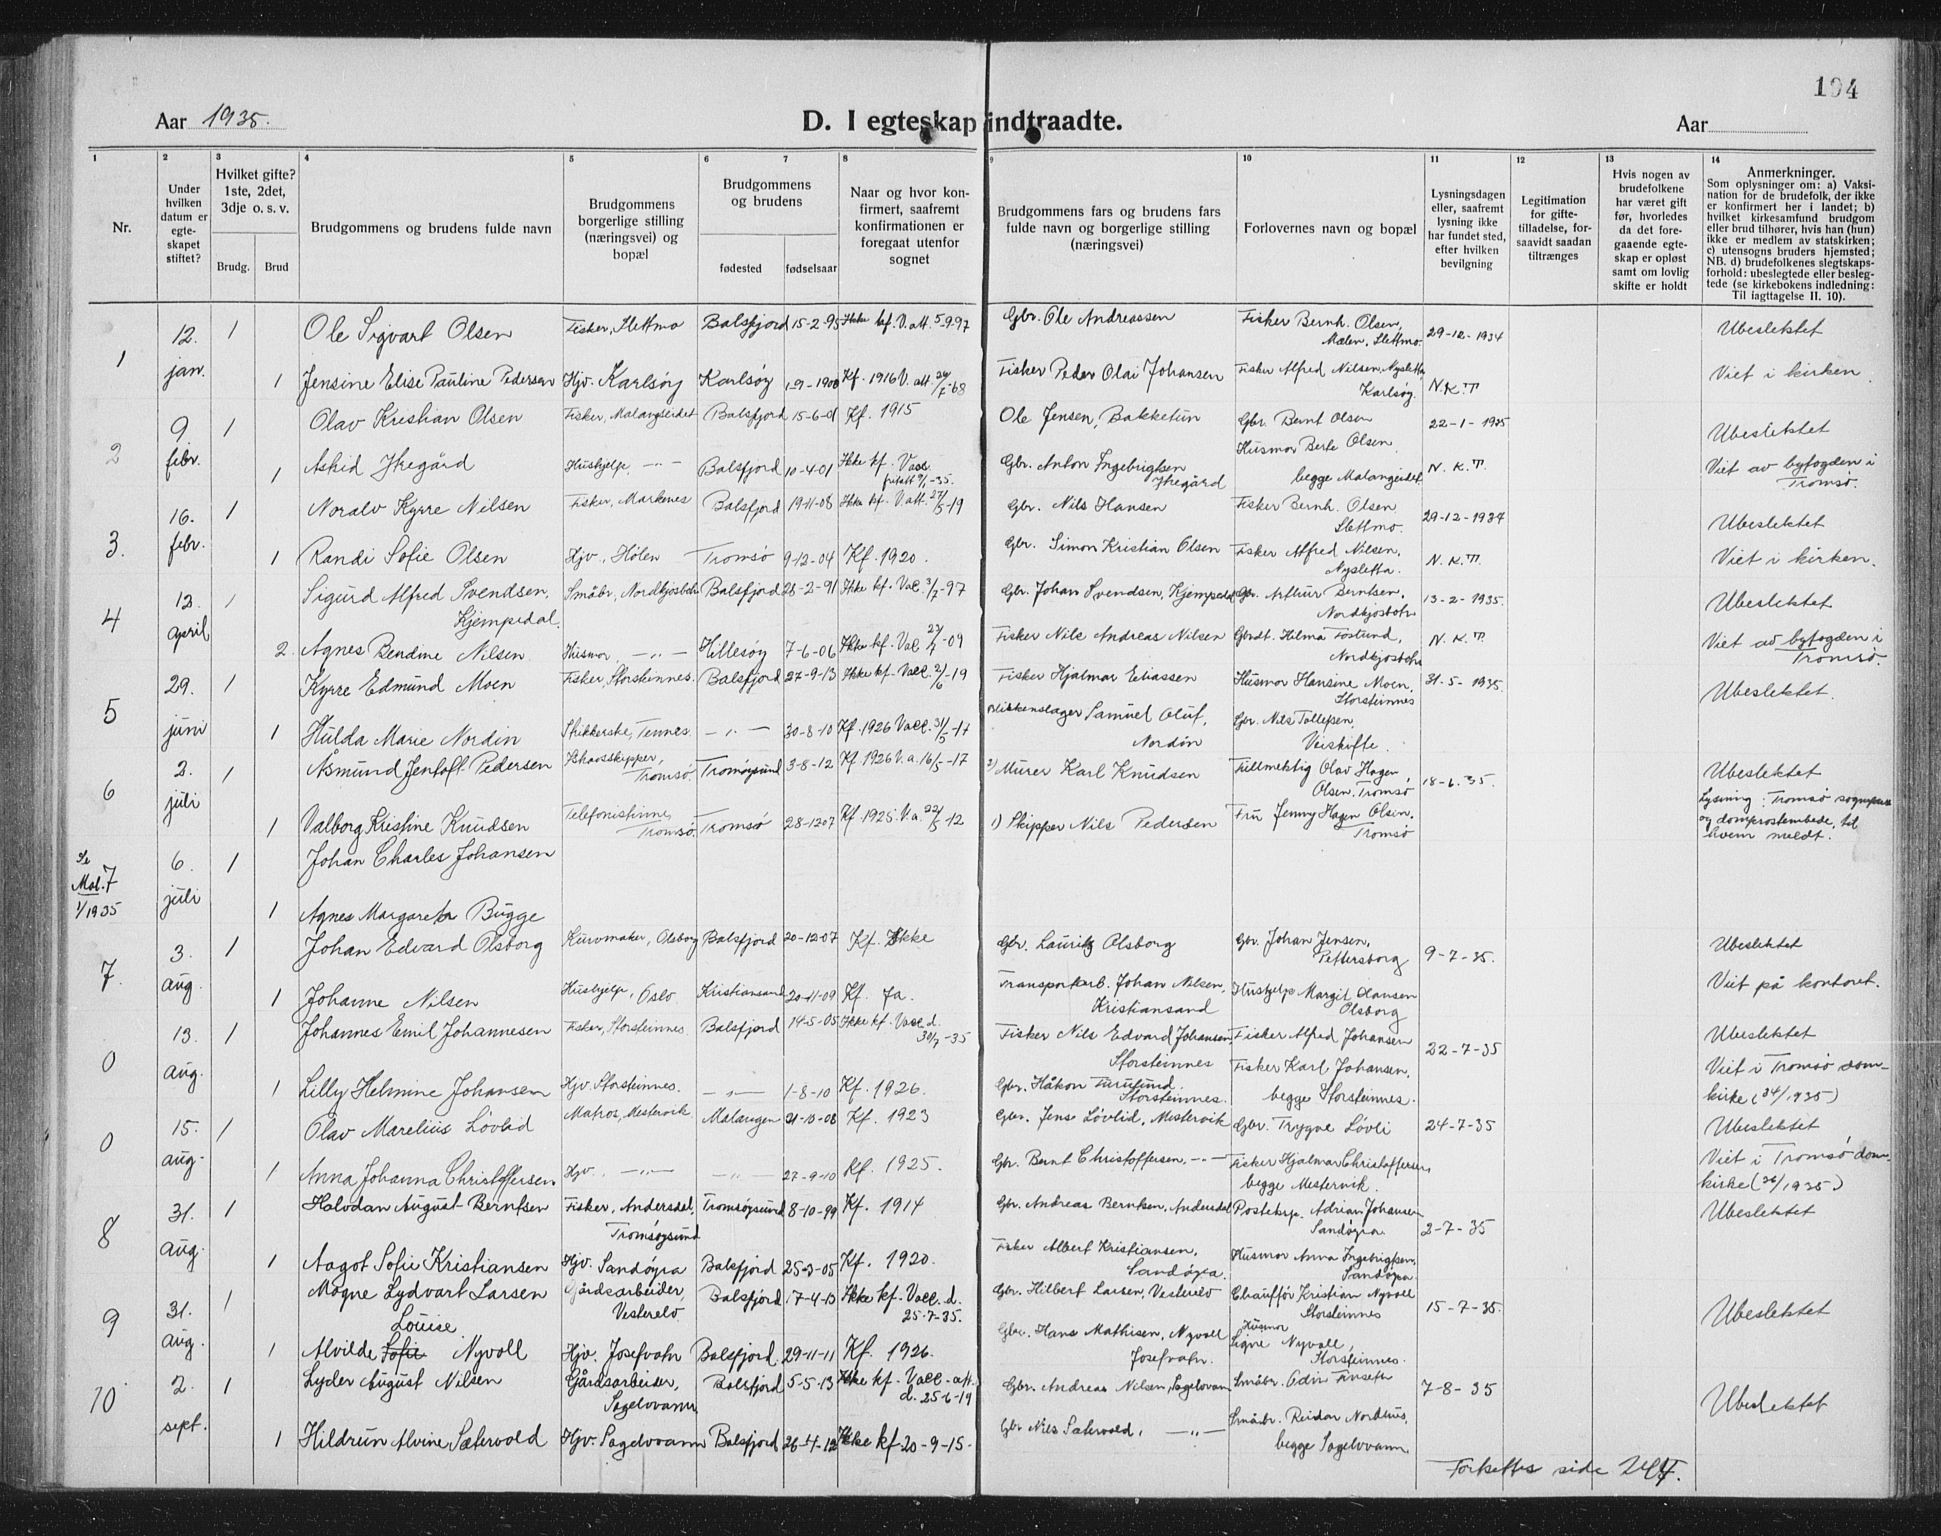 194
Aar 1935.
D. I egteskap indtraadte.
Aar
1 2 3 4 5 6 7 8 9 10 11 12 13 14
Nr.
Under hvilken datum er egteskapet stiftet?
Hvilket gifte? 1ste, 2det, 3dje o. s. v.
Brudg. Brud
Brudgommens og brudens fulde navn
Brudgommens borgerlige stilling (næringsvei) og bopæl
Brudgommens og brudens
fødested fødselsaar
Naar og hvor konfirmert, saafremt konfirmationen er foregaat utenfor sognet
Brudgommens fars og brudens fars fulde navn og borgerlige stilling (næringsvei)
Forlovernes navn og bopæl
Lysningsdagen eller, saafremt lysning ikke har fundet sted, efter hvilken bevilgning
Legitimation for giftetilladelse, forsaavidt saadan tiltrænges
Hvis nogen av brudefolkene har været gift før, hvorledes da det foregaaende egteskap er opløst samt om lovlig skifte er holdt
Anmerkninger.
Som oplysninger om: a) Vaksination for de brudefolk, der ikke er konfirmert her i landet; b) hvilket kirkesamfund brudgom eller brud tilhører, hvis han (hun) ikke er medlem av statskirken; c) utensogns bruders hjemsted; NB. d) brudefolkenes slegtskapsforhold: ubeslegtede eller beslegtede (se kirkebokens indledning: Til iagttagelse II. 10).
1 12. jan. 1 Ole Sigvart Olsen Fisker, Slettmo Balsfjord 15-2-95 Ikke kf. V. att. 5-9-97 Gbr. Ole Andreassen Fisker Bernh. Olsen, Mælen, Slettmo. 29-12-1934 Ubeslektet
1 Jensine Elise Pauline Pedersen Hjv. Karlsøy Karlsøy 1-9-1900 Kf. 1916 V. att. Fisker Peder Olai Johansen Fisker Alfred Nilsen, Nysletta, Karlsøy. N.K.T Viet i kirken
2 9 febr. 1 Olav Kristian Olsen Fisker, Malangseidet Balsfjord 15-6-01 Kf. 1915 Ole Jensen, Bakketun Gbr. Bernt Olsen 22-1-1935 Ubeslektet
1 Astrid Ytregård Hushjelp —"— Balsfjord 10-4-01 Ikke kf. Vacc. Gbr. Anton Ingebrigtsen Ytregård Husmor Berte Olsen begge Malangseidet N.K.T. Viet av byfogden i Tromsø.
3. 16. febr. 1 Noralv Kyrre Nilsen Fisker, Markenes Balsfjord 19-11-08 Ikke kf. V att. 27/5-19 Gbr. Nils Hansen Fisker Bernh. Olsen Slettmo. 29-12-1934 Ubeslektet
1 Randi Sofie Olsen Hjv., Holen Tromsø 9-12-04 Kf. 1920. Gbr. Simon Kristian Olsen Fisker Alfred Nilsen, Nysletta. N.K.T. Viet i kirken.
4 12. april 1 Sigurd Alfred Svendsen, Kjempedal. Småbr., Nordkjosbotn Balsfjord 26-2-91 Ikke kf. Vac. 3/7-97 Gbr. Johan Svendsen, Kjempedal Gbr. Arthur Berntsen, Nordkjosbotn 13-2-1935. Ubeslektet
2. Agnes Bendine Nilsen Husmor, —"— Hillesøy 7-6-06 Ikke kf. Vac. Fisker Nils Andreas Nilsen Gbrdt. Hilma Fostund, Nordkjosbotn N.K.T. Viet av byfogden i Tromsø.
5 29. juni 1 Kyrre Edmund Moen Fisker, Storsteinnes. Balsfjord 27-9-13 Ikke kf. Vacc. 2/6-19 Fisker Hjalmar Eliassen Husmor Hansine Moen, Storsteinnes 31-5-1935. Ubeslektet.
1 Hulda Marie Nordin Strikkerske, Tennes —"— 30-8-10 Kf. 1926 Vacc. 31/5-17 Blikkenslager Samuel Oluf, Nordøn Gbr. Nils Tollefsen, Verskifte.
6 2. juli 1 Åsmund Jentoft Pedersen Ishavsskipper, Tromsø Tromsøysund 3-8-12 Kf. 1926 V. a. 16/5-17 2) Murer Karl Knudsen Fullmektig Olav Hagen Olsen, Tromsø 18-6-35. Ubeslektet
1 Valborg Kristine Knudsen Telefonistinne, Tromsø. Tromsø 28-1207 Kf. 1925. V. a. 22/5-12 1) Skipper Nils Pedersen Fru Jenny Hagen Olsen, Tromsø Lysning i Tromsø sogneprest og domprostembede, til hvem meldt.
Se Mal. 1/1935 7 6. juli 1 Johan Charles Johansen
1 Agnes Margareta Bugge
7 3. aug. 1 Johan Edvard Olsborg Kurvmaker, Olsborg Balsfjord 20-12-07 Kf. Ikke Gbr. Lauritz Olsborg Gbr. Johan Jensen, Pettersborg 9-7-35. Ubeslektet
1 Johanne Nilsen Hushjelp, Oslo Kristiansand 20-11-09 Kf. Ja. Transportarb. Johan Nilsen, Kristiansand Hushjelp Margit Olaussen Olsborg Viet på kontoret.
0 13. aug. 1 Johannes Emil Johannesen Fisker, Storsteinnes. Balsfjord 14-5-05 Ikke kf. Vacc. d. 30/7-35 Fisker Nils Edvard Johansen, Storsteinnes Fisker Alfred Johansen 22-7-35 Ubeslektet
1 Lilly Helmine Johansen Hjv. Storsteinnes. —"— 1-8-10 Kf. 1926. Gbr. Håkon Furulund. Storsteinnes. Fisker Karl Johansen, begge Storsteinnes. Viet i Tromsø domkirke (34/1935)
0 15. aug. 1 Olav Marelius Løvlid Matros, Mestervik Malangen 21-10-08 Kf. 1923 Gbr. Jens Løvlid, Mestervik Gbr. Trygve Løvli 24-7-35 Ubeslektet
1 Anna Johanna Christoffersen. Hjv. —"— —"— 27-9-10 Kf. 1925. Gbr. Bernt Christoffersen, —"— Fisker Hjalmar Christoffersen, begge Mestervik. Viet i Tromsø domkirke (36/1935)
8 31. aug. 1 Halvdan August Berntsen Fisker, Andersdal, Tromsøysund Tromsøysund 8-10-99 Kf. 1914 Gbr. Andreas Berntsen, Andersdal Posteksp. Adrian Johansen Sandøyra 2-7-35 Ubeslektet
1 Aagot Sofie Kristiansen Hjv. Sandøyra Balsfjord 25-3-05 Kf. 1920. Fisker Albert Kristiansen, Sandøyra. Husmor Anna Ingebrigtsen, Sandøyra
9 31. aug. 1 Mogne Lydvart Larsen Gårdsarbeider, Vesterelv Balsfjord 17-4-13 Ikke kf. Vacc. d. 25-7-35. Gbr. Hilbert Larsen, Vesterelv Chauffør Kristian Nyvoll Storsteinnes 15-7-35. Ubeslektet
1 Alvilde Sofie Louise Nyvoll Hjv. Josefvatn Balsfjord 29-11-11 Kf. 1926. Gbr. Hans Mathisen, Nyvoll Josefvatn. Husmor Signe Nyvoll, Storsteinnes.
10 2. sept. 1 Lyder August Nilsen Gårdsarbeider, Sagelvvann Balsfjord 5-5-13 Ikke kf. Vacc. att. d. 25-6-19 Gbr. Andreas Nilsen, Sagelvvann Småbr. Odin 7-8-35 Ubeslektet
1 Hildrun Alvine Sætervold Hjv. Sagelvvann Balsfjord 26-4-12 Ikke kf 20-9-15. Gbr Nils Sætervold, —"— Småbr. Reidar Nordhus, begge Sagelvvann.
Forsettes side 244.